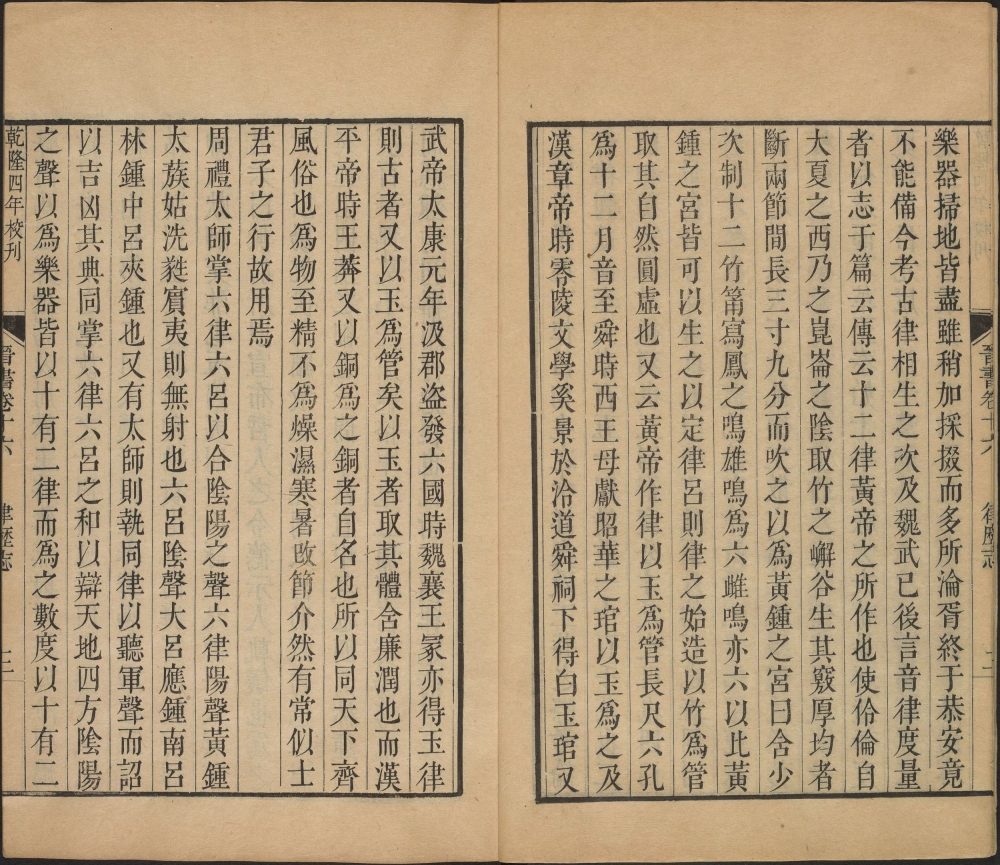 樂器掃地皆盡雖稍加採掇而多所淪胥終于恭安竟
不能備今考古律相生之次及魏武已後言音律度量
者以志于篇云傳云十二律黃帝之所作也使伶倫自
大夏之西乃之崑崙之陰取竹之嶰谷生其竅厚均者
斷兩節間長三寸九分而吹之以爲黃鍾之宮曰含少
次制十二竹筩寫鳳之鳴雄鳴爲六雌鳴亦六以比黃
鍾之宮皆可以生之以定律呂則律之始造以竹爲管
取其自然圓虛也又云黃帝作律以玉爲管長尺六孔
爲十二月音至舜時西王母獻昭華之琯以玉爲之及
漢章帝時零陵文學奚景於泠道舜祠下得白玉琯又
晉書卷十六
律歷志
武帝太康元年汲郡盜發六國時魏襄王冢亦得玉律
則古者又以玉爲管矣以玉者取其體含廉潤也而漢
平帝時王莽又以銅爲之銅者自名也所以同天下齊
風俗也爲物至精不爲燥濕寒暑改節介然有常似士
君子之行故用焉
周禮太師掌六律六呂以合陰陽之聲六律陽聲黃鍾
太蔟姑洗蕤賓夷則無射也六呂陰聲大呂應鍾南呂
林鍾中呂夾鍾也又有太師則執同律以聽軍聲而詔
以吉凶其典同掌六律六呂之和以辯天地四方陰陽
之聲以爲樂器皆以十有二律而爲之數度以十有二
乾隆四年校刊
晉書卷十六
律歷志